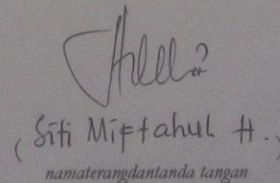 (Siti Miftahul H.,
namaterangdantanda tangan